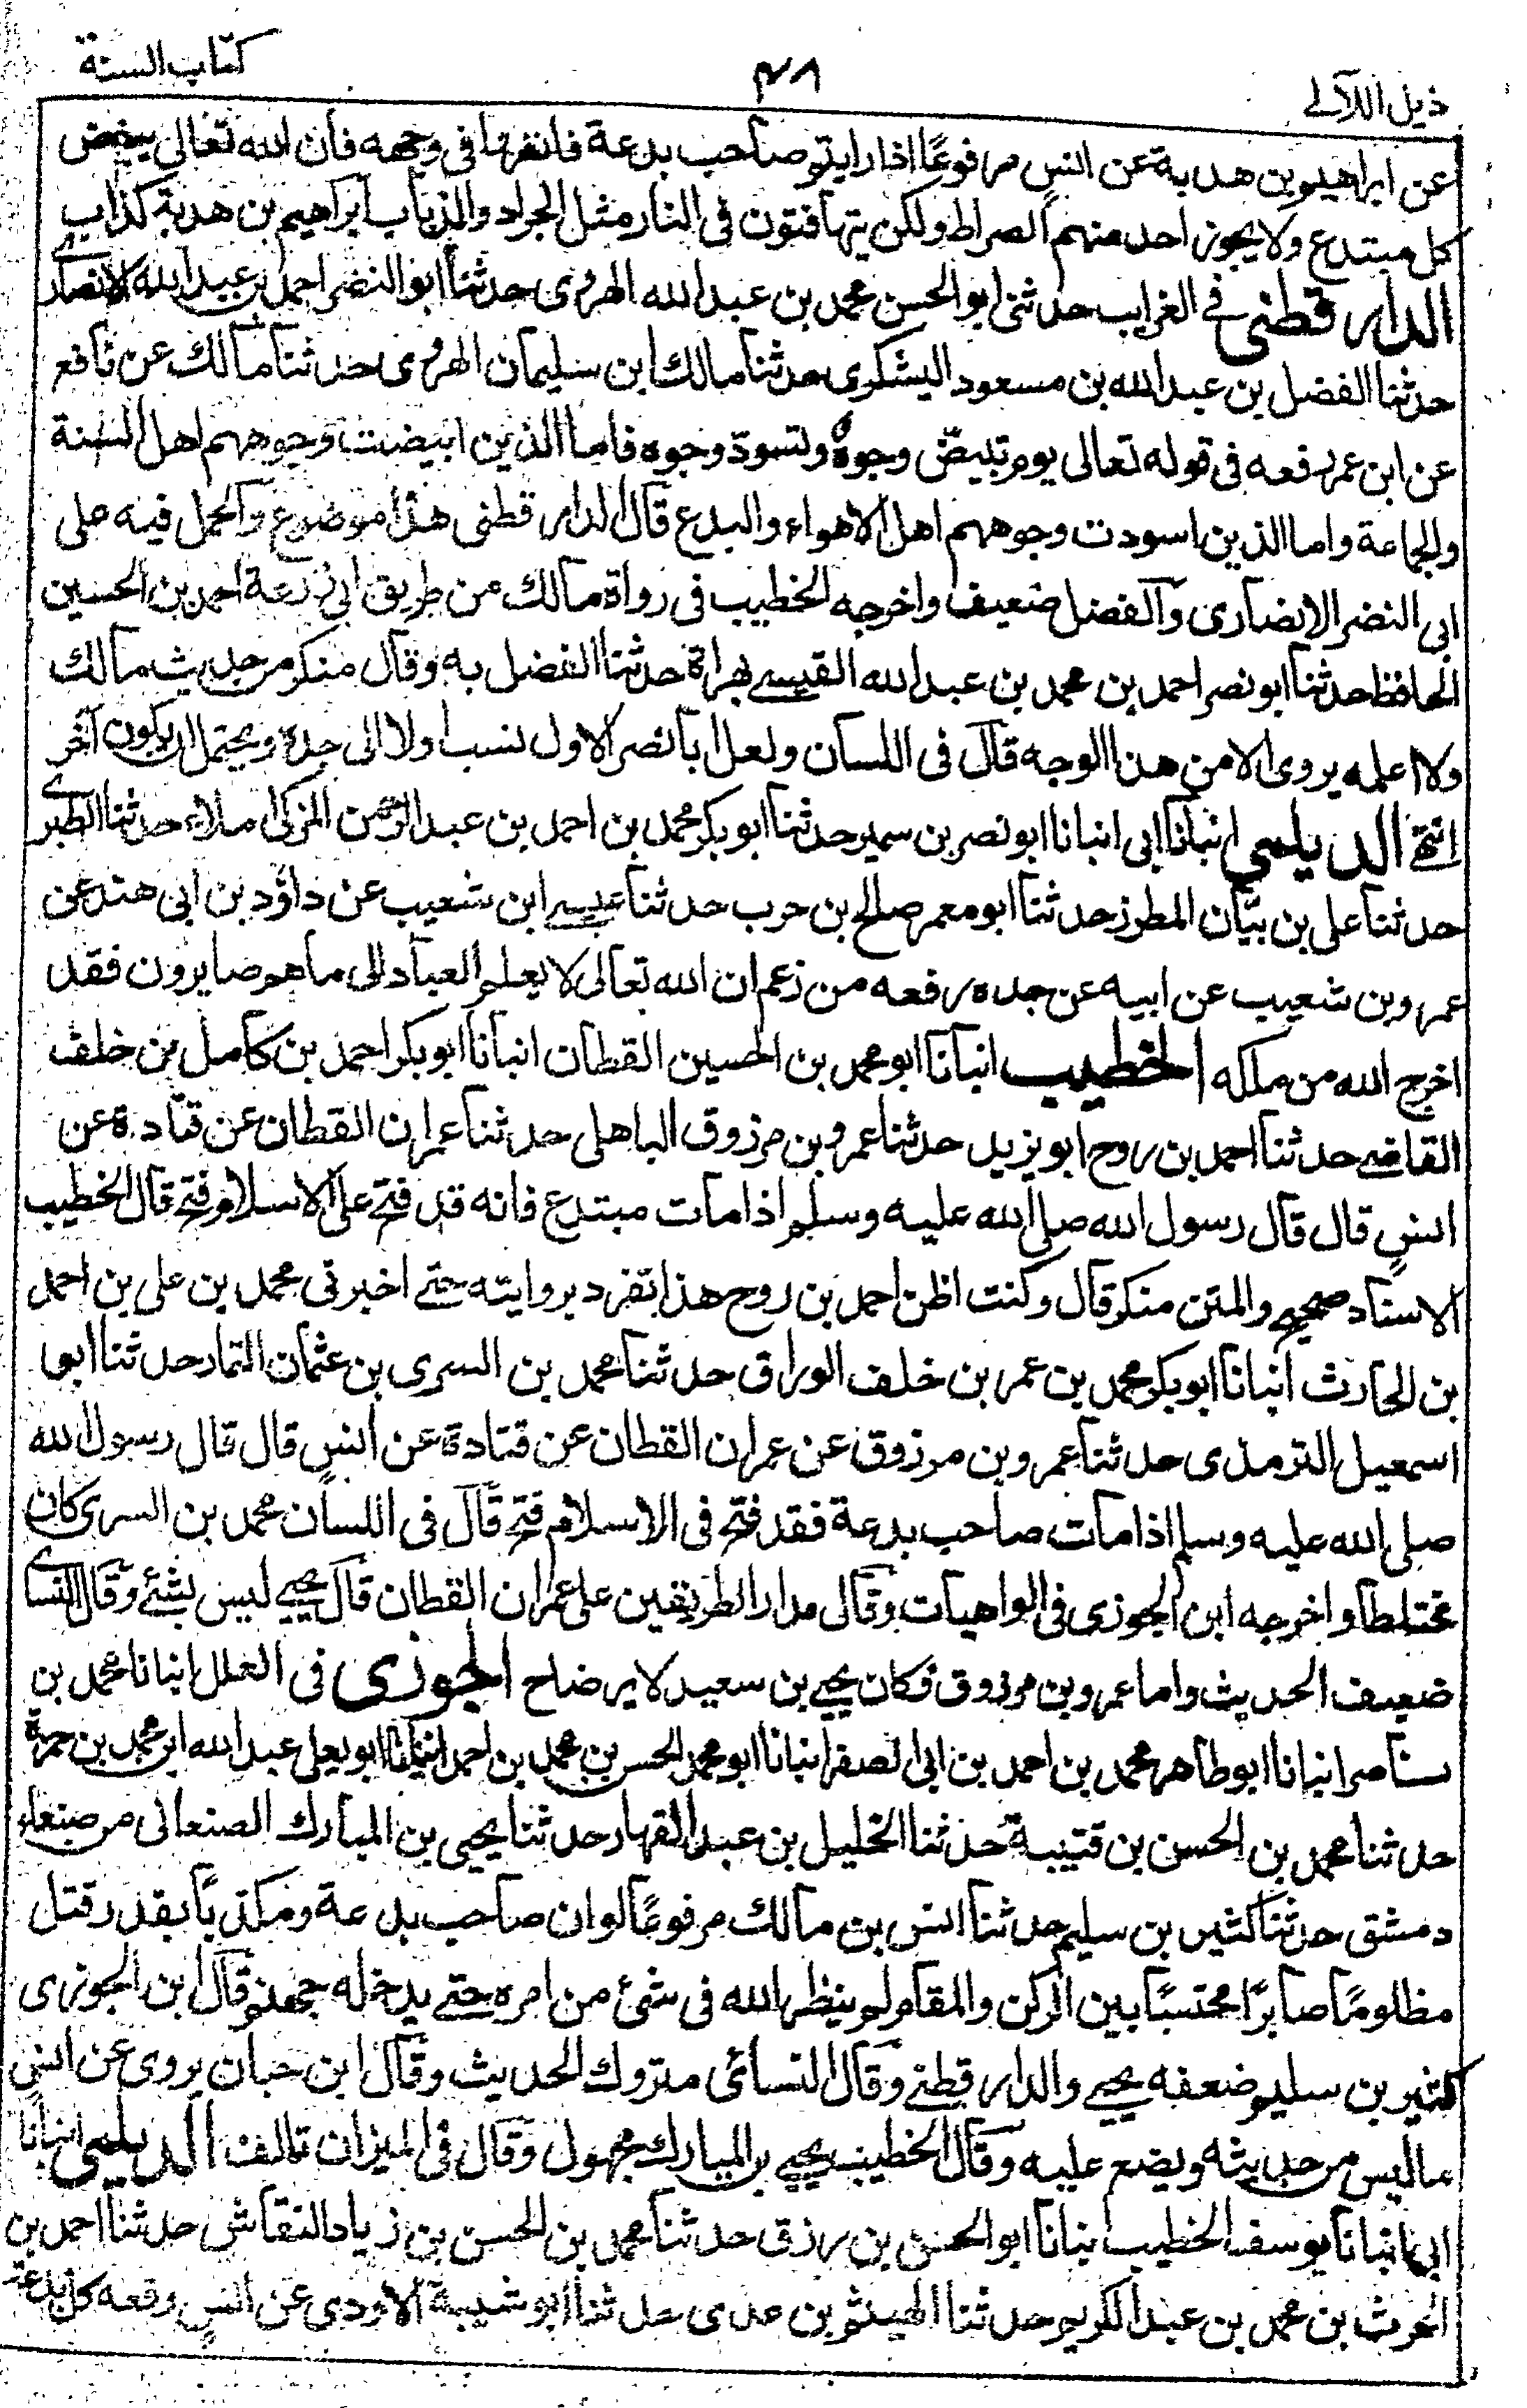 ذيل اللآلي ٤٨ كتاب السنة
عن ابراهيم بن هدبة عن انس مرفوعًا اذا رايتم صاحب بدعة فاكفهروا في وجهه فان الله تعالى يبغض
كل مبتدع ولا يجوز احد منهم الصراط ولكن يتهافتون في النار مثل الجراد والذباب ابراهيم بن هدبة كذاب
الدارقطني في الغرايب حدثني ابو الحسن محمد بن عبد الله الهروي حدثنا ابو النضر احمد بن عبد الله الانصاري
حدثنا الفضل بن عبد الله بن مسعود اليشكري حدثنا مالك ابن سليمان الهروي حدثنا مالك عن نافع
عن ابن عمر رفعه في قوله تعالى يوم تبيضّ وجوهٌ وتسودّ وجوه فاما الذين ابيضت وجوههم اهل السنة
والجماعة واما الذين اسودت وجوههم اهل الاهواء والبدع قال الدارقطني هذا موضوع والحمل فيه على
ابي النضر الانصاري والفضل ضعيف واخرجه الخطيب في رواة مالك من طريق ابي زرعة احمد بن الحسين
الحافظ حدثنا ابو نصر احمد بن محمد بن عبد الله القيسي بهراة حدثنا الفضل به وقال منكر من حديث مالك
ولا اعلمه يروى الا من هذا الوجه قال في اللسان ولعل ابا نصر الاول نسب اولا الى جده ويحتمل ان يكون آخر
انتهى الديلمي انبانا ابي انبانا ابو نصر بن سمير حدثنا ابو بكر محمد بن احمد بن عبد الرحمن المزكى املاء حدثنا الطبري
حدثنا علي بن بيّان المطرز حدثنا ابو معمر صالح بن حرب حدثنا عيسى ابن شعيب عن داؤد بن ابي هند عن
عمرو بن شعيب عن ابيه عن جده رفعه من زعم ان الله تعالى لا يعلم العباد الى ما هم صايرون فقد
اخرج الله من ملكه الخطيب انبانا ابو محمد بن الحسين القطان انبانا ابو بكر احمد بن كامل بن خلف
القاضي حدثنا احمد بن روح ابو يزيد حدثنا عمرو بن مرزوق الباهلي حدثنا عمران القطان عن قتادة عن
انس قال قال رسول الله صلى الله عليه وسلم اذا مات مبتدع فانه قد فتح على الاسلام فتح قال الخطيب
الاسناد صحيح والمتن منكر قال وكنت اظن احمد بن روح هذا تفرد بروايته حتى اخبرني محمد بن علي بن احمد
بن الحارث انبانا ابو بكر محمد بن عمر بن خلف الوراق حدثنا محمد بن السري بن عثمان التمار حدثنا ابو
اسمعيل الترمذي حدثنا عمرو بن مرزوق عن عمران القطان عن قتادة عن انس قال قال رسول الله
صلى الله عليه وسلم اذا مات صاحب بدعة فقد فتح في الاسلام فتح قال في اللسان محمد بن السري كان
مختلطا واخرجه ابن الجوزي في الواهيات وقال مدار الطريقين على عمران القطان قال يحيى ليس بشئ وقال النسائي
ضعيف الحديث واما عمرو بن مرزوق فكان يحيى بن سعيد لا يرضاه الجوزي في العلل انبانا محمد بن
ناصر انبانا ابو طاهر محمد بن احمد بن ابي الصقر انبانا ابو محمد الحسن بن محمد بن احمد انبانا ابو يعلى عبد الله ابن محمد بن حمزة
حدثنا محمد بن الحسن بن قتيبة حدثنا الخليل بن عبد القهار حدثنا يحيى بن المبارك الصنعاني من صنعاء
دمشق حدثنا كثير بن سليم حدثنا انس بن مالك مرفوعًا لو ان صاحب بدعة ومكذبًا بقدر قتل
مظلومًا صابرًا محتسبًا بين الركن والمقام لم ينظر الله في شئ من امره حتى يدخله جهنم قال ابن الجوزي
كثير بن سليم ضعفه يحيى والدارقطني وقال النسائي متروك الحديث وقال ابن حبان يروي عن انس
ما ليس من حديثه ويضع عليه وقال الخطيب يحيى بن المبارك مجهول وقال في الميزان تالف الديلمي انبانا
ابي انبانا يوسف الخطيب انبانا ابو الحسن بن رزق حدثنا محمد بن الحسن بن زياد النقاش حدثنا احمد بن
الحرث بن محمد بن عبد الكريم حدثنا الهيثم بن عدي حدثنا ابو شيبة الاودي عن انس رفعه كل بدعة